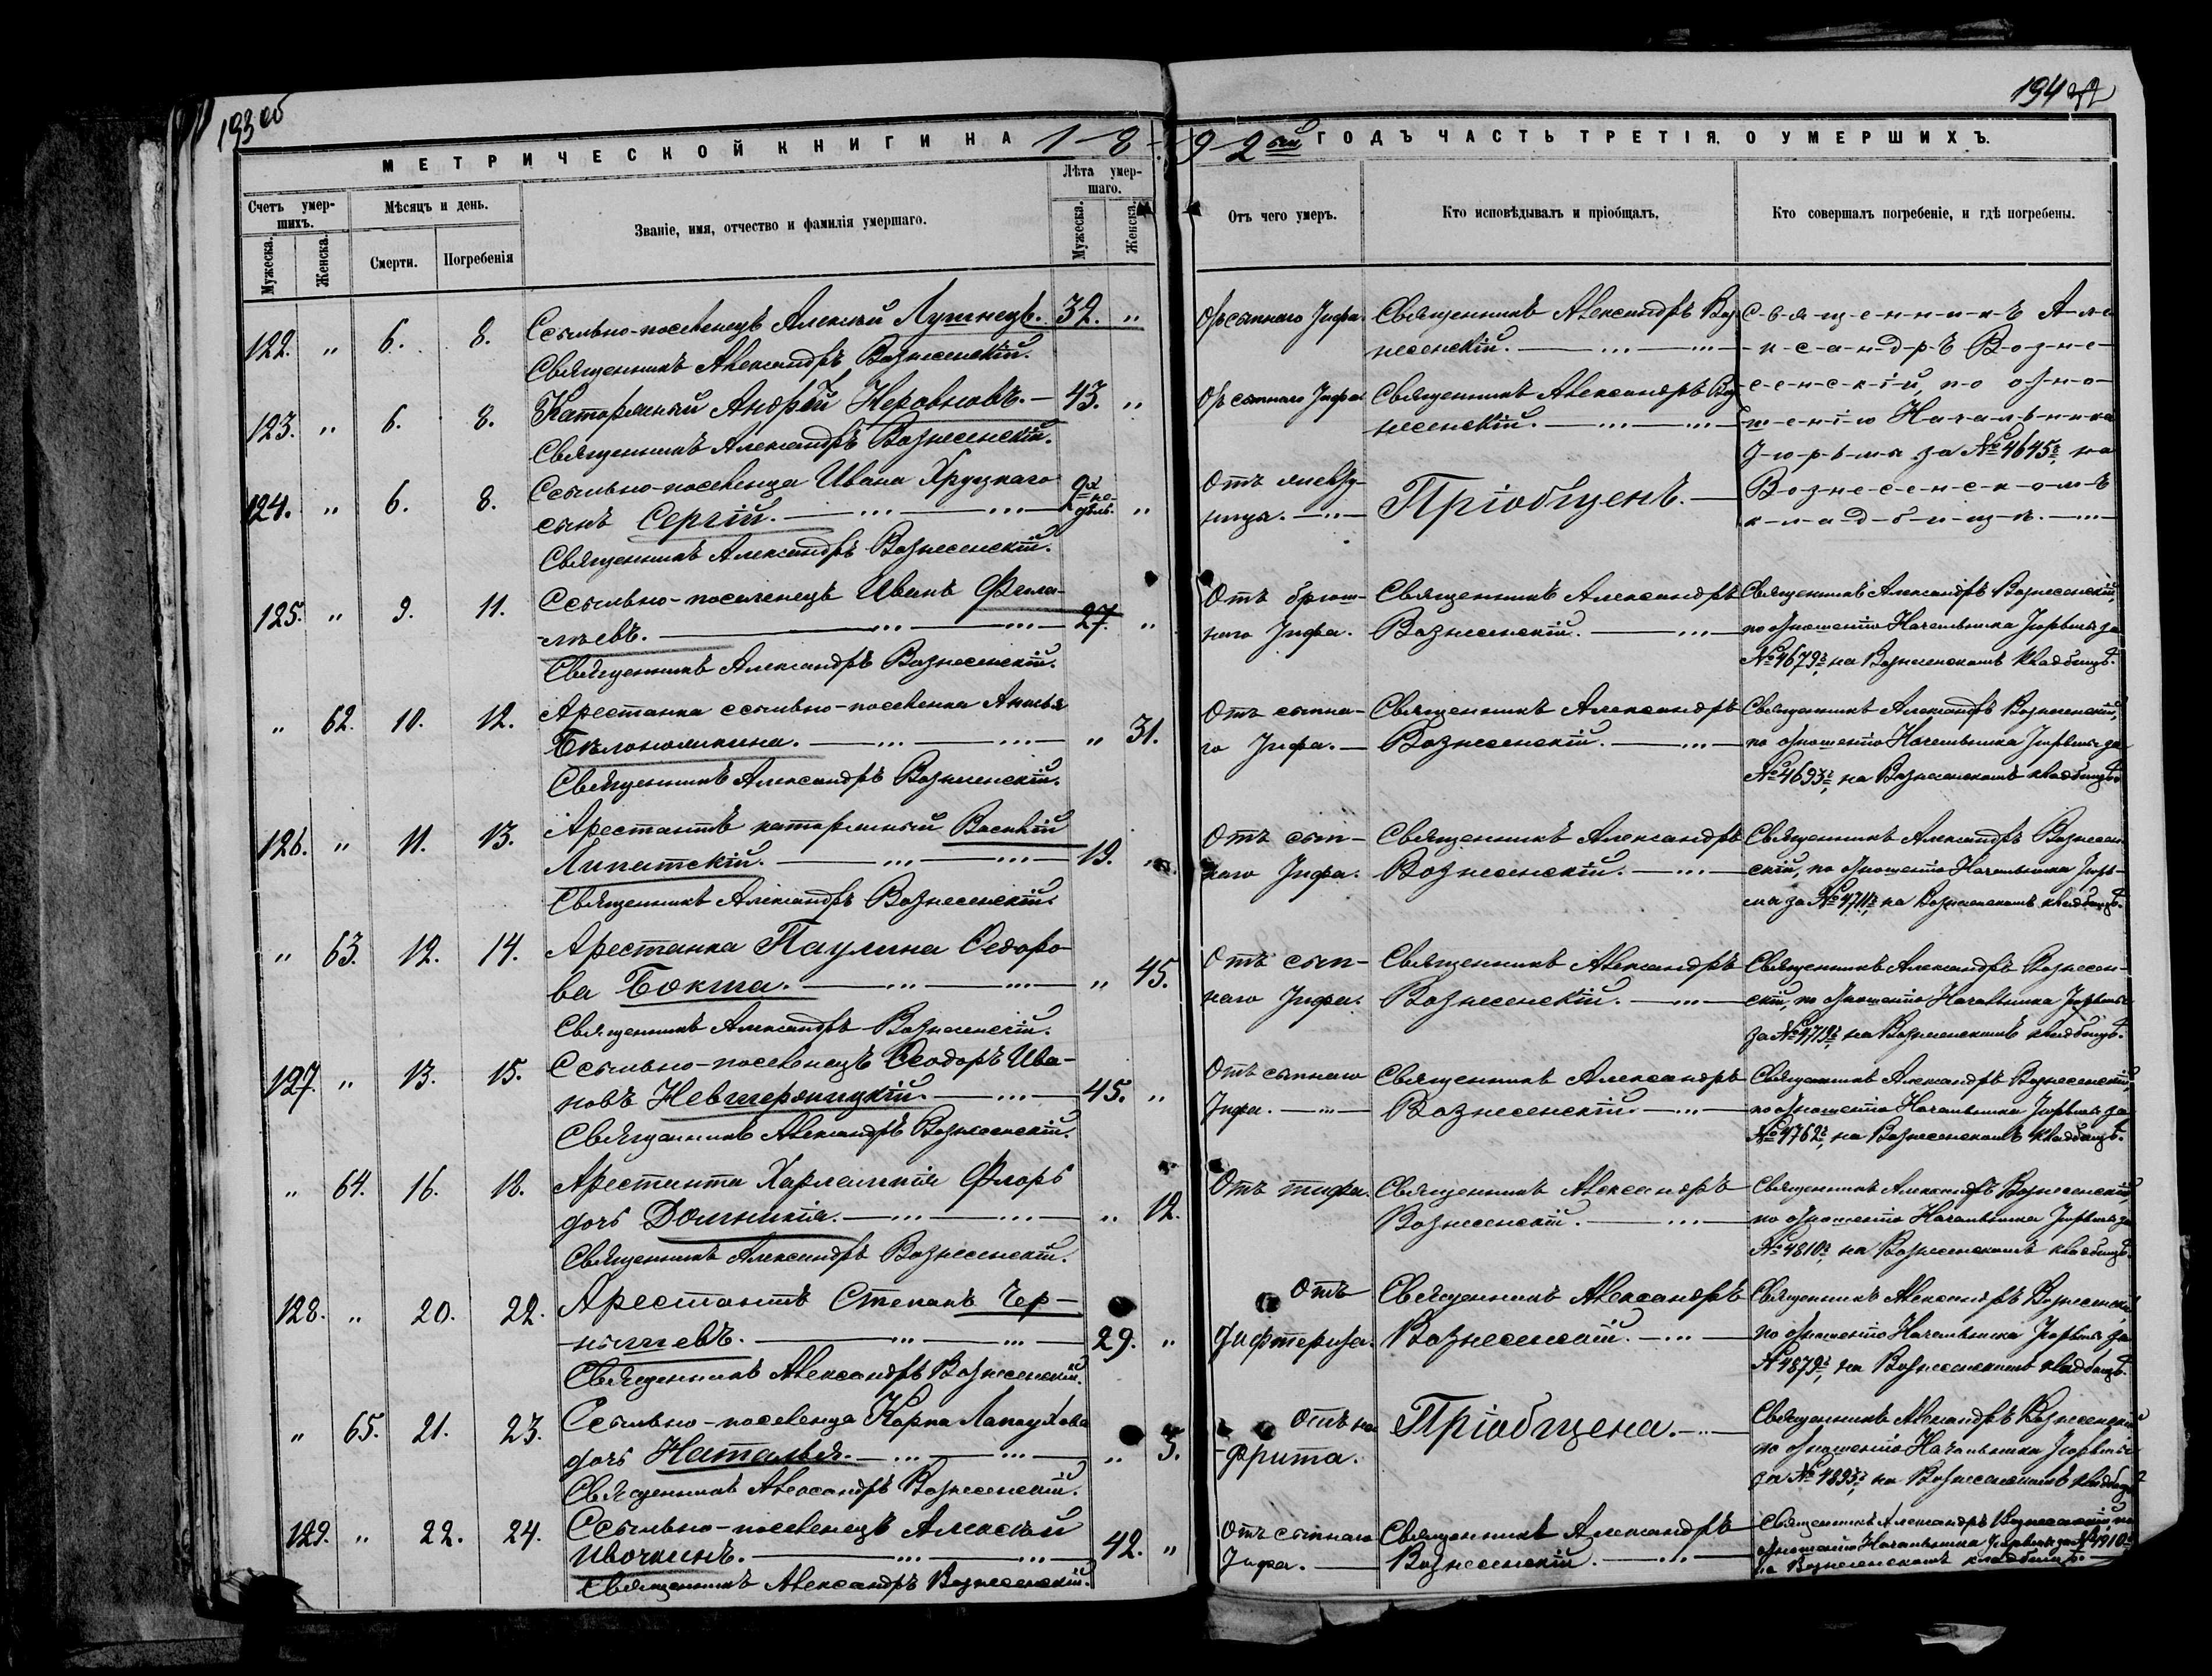 193 об
194
МЕТРИЧЕСКОЙ КНИГИ НА 1892ой ГОДЪ ЧАСТЬ ТРЕТІЯ. О УМЕРШИХЪ.
Счетъ умершихъ.
Мужеска.
Женска.
Мѣсяцъ и день.
Смерти.
Погребенія
Званіе, имя, отчество и фамилія умершаго.
Лѣта умершаго.
Мужеска.
Женска.
Отъ чего умеръ.
Кто исповѣдывалъ и пріобщалъ.
Кто совершалъ погребеніе, и гдѣ погребены.
122. „ 6. 8. Ссыльно-поселенецъ Алексѣй Лушнецъ. 32. „
Священникъ Александръ Вознесенскій.
От сыпнаго Тифа. Священникъ Александръ Воз
несенскій.
Священникъ Але
ксандръ Возне-
сенскій, по отно-
шенію Начальника
Тюрьмы за № 4645, на
Вознесенскомъ
кладбищѣ.
123. „ 6. 8. Каторжный Андрей Неровновъ. 43. „
Священникъ Александръ Вознесенскій.
От сыпнаго Тифа. Священникъ Александръ Воз
несенскій.
124. „ 6. 8. Ссыльно-поселенца Ивана Хруцкаго
сынъ Сергій. 2х недѣль. „
Священникъ Александръ Вознесенскій.
Отъ
Пріобщенъ.
125. „ 9. 11. Ссыльно-поселенецъ Иванъ Фила-
тьевъ. 27. „
Священникъ Александръ Вознесенскій.
Отъ брюш-
наго Тифа. Священникъ Александръ
Вознесенскій.
Священникъ Александръ Вознесенскій,
по отношенію Начальника Тюрьмы за
№ 4679, на Вознесенскомъ кладбищѣ.
„ 62. 10. 12. Арестанка ссыльно-поселенка Анисья
Бѣлоножкина. „ 31.
Священникъ Александръ Вознесенскій.
Отъ сыпна-
го Тифа. Священникъ Александръ
Вознесенскій.
Священникъ Александръ Вознесенскій,
по отношенію Начальника Тюрьмы за
№ 4693, на Вознесенскомъ кладбищѣ.
126. „ 11. 13. Арестантъ каторжный Василій
Липатскій. 19. „
Священникъ Александръ Вознесенскій.
Отъ сып-
наго Тифа. Священникъ Александръ
Вознесенскій.
Священникъ Александръ Вознесен-
скій, по отношенію Начальника Тюрь-
мы за № 4711, на Вознесенскомъ кладбищѣ.
„ 63. 12. 14. Арестанка Паулина Ѳедоро-
ва Бокша. „ 45.
Священникъ Александръ Вознесенскій.
Отъ сып-
наго Тифа. Священникъ Александръ
Вознесенскій.
Священникъ Александръ Вознесен-
скій, по отношенію Начальника Тюрьмы
за № 4719, на Вознесенскомъ кладбищѣ.
127. „ 13. 15. Ссыльно-поселенецъ Ѳеодоръ Ива-
новъ 45. „
Священникъ Александръ Вознесенскій.
Отъ сыпнаго
Тифа. Священникъ Александръ
Вознесенскій.
Священникъ Александръ Вознесенскій,
по отношенію Начальника Тюрьмы за
№ 4762, на Вознесенскомъ кладбищѣ.
„ 64. 16. 18. Арестанта Харлампія Флоръ
дочь Домникія. „ 12.
Священникъ Александръ Вознесенскій.
Отъ тифа. Священникъ Александръ
Вознесенскій.
Священникъ Александръ Вознесенскій,
по отношенію Начальника Тюрьмы за
№ 4810, на Вознесенскомъ кладбищѣ.
128. „ 20. 22. Арестантъ Степанъ Чер-
нышевъ. 29. „
Священникъ Александръ Вознесенскій.
Отъ
Дифтерита. Священникъ Александръ
Вознесенскій.
Священникъ Александръ Вознесенскій,
по отношенію Начальника Тюрьмы за
№ 4879, на Вознесенскомъ кладбищѣ.
„ 65. 21. 23. Ссыльно-поселенца Карпа Лапаухова
дочь Наталья. „ 5.
Священникъ Александръ Вознесенскій.
Отъ не-
фрита. Пріобщена.
Священникъ Александръ Вознесенскій
по отношенію Начальника Тюрьмы
за № 4893, на Вознесенскомъ кладбищѣ
129. „ 22. 24. Ссыльно-поселенецъ Алексѣй
Ивочкинъ. 42. „
Священникъ Александръ Вознесенскій.
Отъ сыпнаго
Тифа. Священникъ Александръ
Вознесенскій.
Священникъ Александръ Вознесенскій, по
отношенію Начальника Тюрьмы за № 4910,
на Вознесенскомъ кладбищѣ.